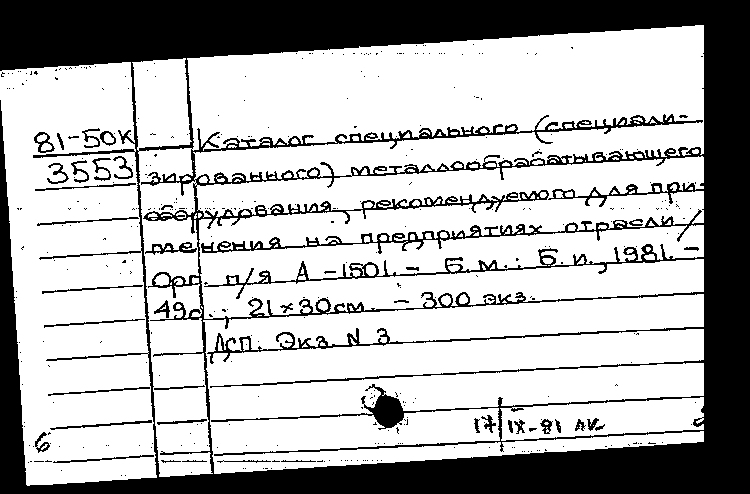 81-50к Каталог специального (специали-
3553 зированного) металлообрабатывающего
оборудования, рекомендуемого для при-
менения на предприятиях отрасли/
Орг. п/я А-1501. - Б.м.: Б.и., 1981. -
49с.; 21×30см. - 300 экз.
Дсп. Экз. N 3
17/IX-81 АК
6